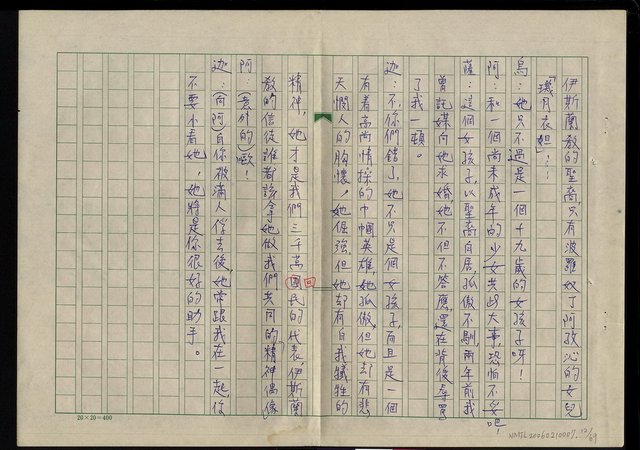 伊斯蘭教的聖裔,只有波羅奴了阿孜沁的女兒
「瑪月衣妲」…
烏:她只不過是一個十九歲的女孩子呀!
阿:和一個尚未成年的少女共謀大事,恐怕不妥吧,
薩:這個女孩子,以聖裔自居,孤傲不馴,兩年前我
曾託媒向她求婚,她不但不答應,還在背後辱罵
了我一頓。
迦:不,你們錯了,她不只是個女孩子,而且是一個
有着高尚情操的巾幗英雄,她孤傲,但她却有悲
天憫人的胸懷,她倔強但她却有自我犧牲的
精神,她才是我們三千萬回民的代表,伊斯蘭
教的信徒誰都該拿她做我們共同的「精神偶像」
阿:(意外的)歐!
迦:(向阿)自你被滿人俘去後,她常跟我在一起,你
不要小看她,她將是你很好的助手。
20×20=400
NMTL20060210007. 12/69